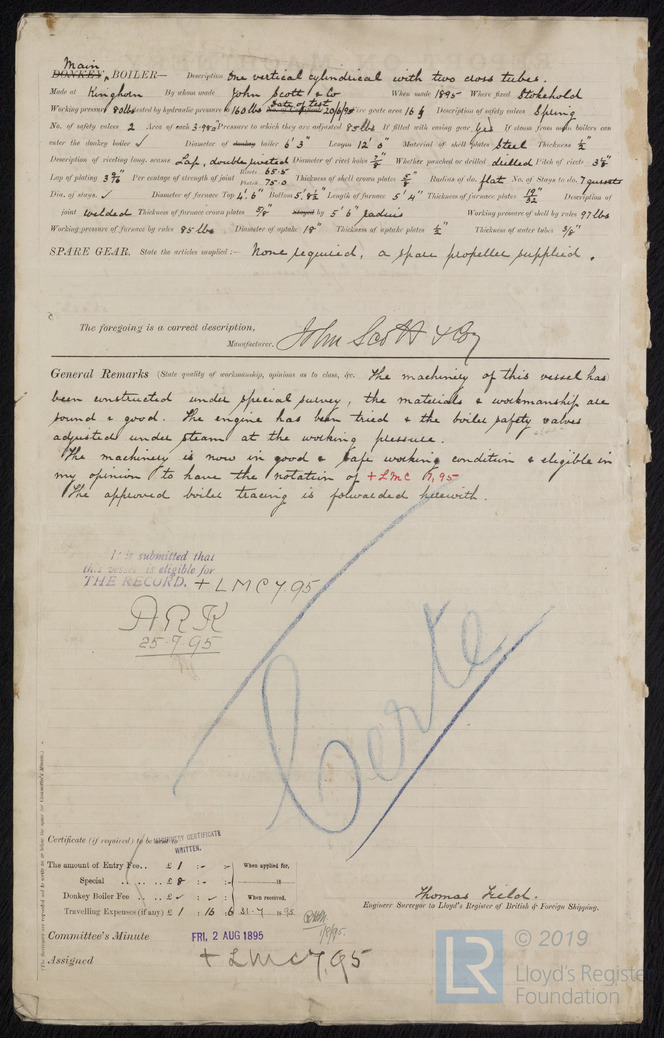 Main
DONKEY BOILER— Description One vertical cylindrical with two cross tubes.
Made at Kinghorn By whom made John Scott & Co When made 1895 Where fixed Stokehold
Working pressure 80 lbs tested by hydraulic pressure to 160 lbs Date of test 20/6/95 Fire grate area 16 ½ Description of safety valves Spring
No. of safety valves 2 Area of each 3.98" Pressure to which they are adjusted 85 lbs If fitted with easing gear Yes If steam from main boilers can
enter the donkey boiler ✓ Diameter of donkey boiler 6' 3" Length 12' 0" Material of shell plates Steel Thickness ½"
Description of riveting long. seams Lap, double riveted Diameter of rivet holes ⅞" Whether punched or drilled drilled Pitch of rivets 3⅛"
Lap of plating 3 9/16" Per centage of strength of joint Rivets 65.5 Plates 75.0 Thickness of shell crown plates ⅝" Radius of do. flat No. of Stays to do. 7 gussets
Dia. of stays. ✓ Diameter of furnace Top 4' 6" Bottom 5' 8½" Length of furnace 5' 4" Thickness of furnace plates 19/32" Description of
joint welded Thickness of furnace crown plates ⅝" stayed by 5' 6" radius Working pressure of shell by rules 97 lbs
Working pressure of furnace by rules 85 lbs Diameter of uptake 18" Thickness of uptake plates ½" Thickness of water tubes ⅜"
SPARE GEAR. State the articles supplied:— None required, a spare propeller supplied.
The foregoing is a correct description,
Manufacturer. John Scott & Coy
General Remarks (State quality of workmanship, opinions as to class, &c. The machinery of this vessel has
been constructed under special survey, the materials & workmanship are
sound & good. The engine has been tried & the boiler safety valves
adjusted under steam at the working pressure.
The machinery is now in good & safe working condition & eligible in
my opinion to have the notation of + LMC 7,95
The approved boiler tracing is forwarded herewith.
It is submitted that
this vessel is eligible for
THE RECORD. + LMC 7.95
25.7.95
Certe
Certificate (if required) to be sent to
MACHINERY CERTIFICATE
WRITTEN.
The amount of Entry Fee.. £ 1 : - : - When applied for,
Special .. .. .. £ 8 : - : - 18
Donkey Boiler Fee .. .. £ ✓ : ✓ : When received.
Travelling Expenses (if any) £ 1 : 16 : 6 31.7 1895
1/8/95.
Thomas Field.
Engineer Surveyor to Lloyd's Register of British & Foreign Shipping.
Committee's Minute FRI. 2 AUG 1895
Assigned + LMC 7,95
LR © 2019
Lloyd's Register
Foundation